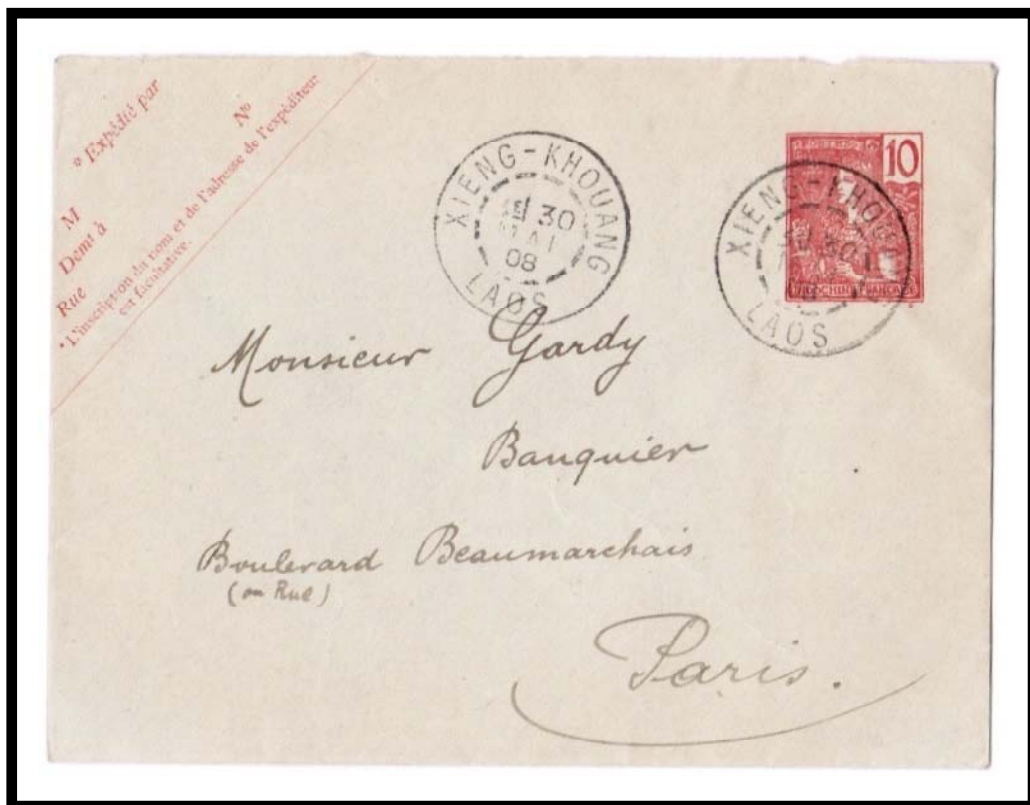 * Expédié par
M
N°
Demt à
Rue
* L'inscription du nom et de l'adresse de l'expéditeur
est facultative.
XIENG-KHOUANG
30
MAI
08
LAOS
10
XIENG-KHOUANG
30
LAOS
INDOCHINE FRANÇAISE
Monsieur Gardy
Banquier
Boulevard Beaumarchais
(ou Rue)
Paris.